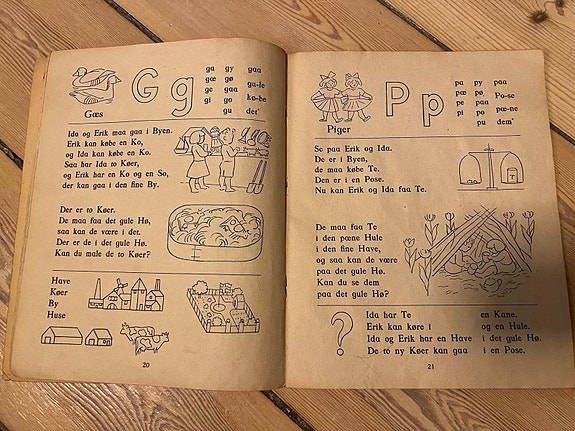 Gg
ga gy gaa
gæ gø
ge gaa gu-le
gi go kø-be
gu det'
Gæs
Ida og Erik maa gaa i Byen.
Erik kan købe en Ko,
og Ida kan købe en Ko.
Saa har Ida to Køer,
og Erik har en Ko og en So,
der kan gaa i den fine By.
Der er to Køer.
De maa faa det gule Hø,
saa kan de være i det.
Der er de i det gule Hø.
Kan du male de to Køer?
Have
Køer
By
Huse
20
Pp
pa py paa
pæ pø Po-se
pe paa
pi po pæ-ne
pu dem'
Piger
Se paa Erik og Ida.
De er i Byen,
de maa købe Te.
Den er i en Pose.
Nu kan Erik og Ida faa Te.
De maa faa Te
i den pæne Hule
i den fine Have,
og saa kan de være
paa det gule Hø.
Kan du se dem
paa det gule Hø?
?
Ida har Te en Kane.
Erik kan køre i og en Hule.
Ida og Erik har en Have i det gule Hø.
De to ny Køer kan gaa i en Pose.
21